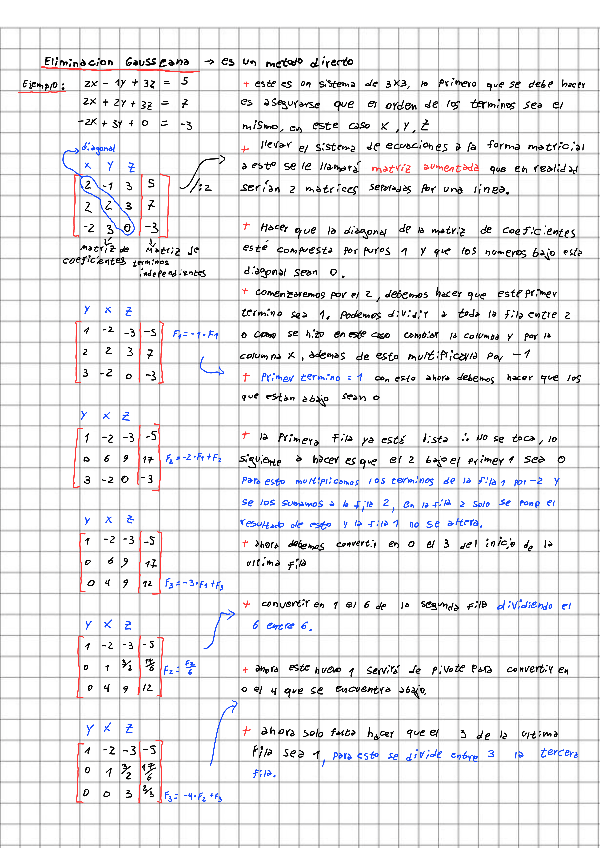 Eliminacion Gausseana → es un metodo directo
Ejemplo:
2x - 1y + 3z = 5
2x + 2y + 3z = 7
-2x + 3y + 0 = -3
+ este es un sistema de 3x3, lo primero que se debe hacer
es asegurarse que el orden de los terminos sea el
mismo, en este caso x, y, z
+ llevar el sistema de ecuaciones a la forma matricial
a esto se le llamará matriz aumentada que en realidad
serían 2 matrices separadas por una linea.
diagonal
x y z
2 -1 3 5
2 2 3 7
-2 3 0 -3
/:2
matriz de coeficientes
matriz de terminos independientes
+ Hacer que la diagonal de la matriz de coeficientes
esté compuesta por puros 1 y que los numeros bajo esta
diagonal sean 0.
+ comenzaremos por el 2, debemos hacer que este primer
termino sea 1, podemos dividir a toda la fila entre 2
o como se hizo en este caso cambiar la columna y por la
columna x, ademas de esto multiplicarla por -1
y x z
1 -2 -3 -5 F1=-1·F1
2 2 3 7
3 -2 0 -3
+ Primer termino = 1 con esto ahora debemos hacer que los
que estan abajo sean 0
y x z
1 -2 -3 -5
0 6 9 17 F2=-2·F1+F2
3 -2 0 -3
+ la primera fila ya está lista ∴ No se toca, lo
siguiente a hacer es que el 2 bajo el primer 1 sea 0
para esto multiplicamos los terminos de la fila 1 por -2 y
se los sumamos a la fila 2, en la fila 2 solo se pone el
resultado de esto y la fila 1 no se altera.
y x z
1 -2 -3 -5
0 6 9 17
0 4 9 12 F3=-3·F1+F3
+ ahora debemos convertir en 0 el 3 del inicio de la
ultima fila
+ convertir en 1 el 6 de la segunda fila dividiendo el
6 entre 6.
y x z
1 -2 -3 -5
0 1 3/2 17/6 F2=F2/6
0 4 9 12
+ ahora este nuevo 1 servirá de pivote para convertir en
0 el 4 que se encuentra abajo.
y x z
1 -2 -3 -5
0 1 3/2 17/6
0 0 3 2/3 F3=-4·F2+F3
+ ahora solo falta hacer que el 3 de la ultima
fila sea 1, para esto se divide entre 3 la tercera
fila.